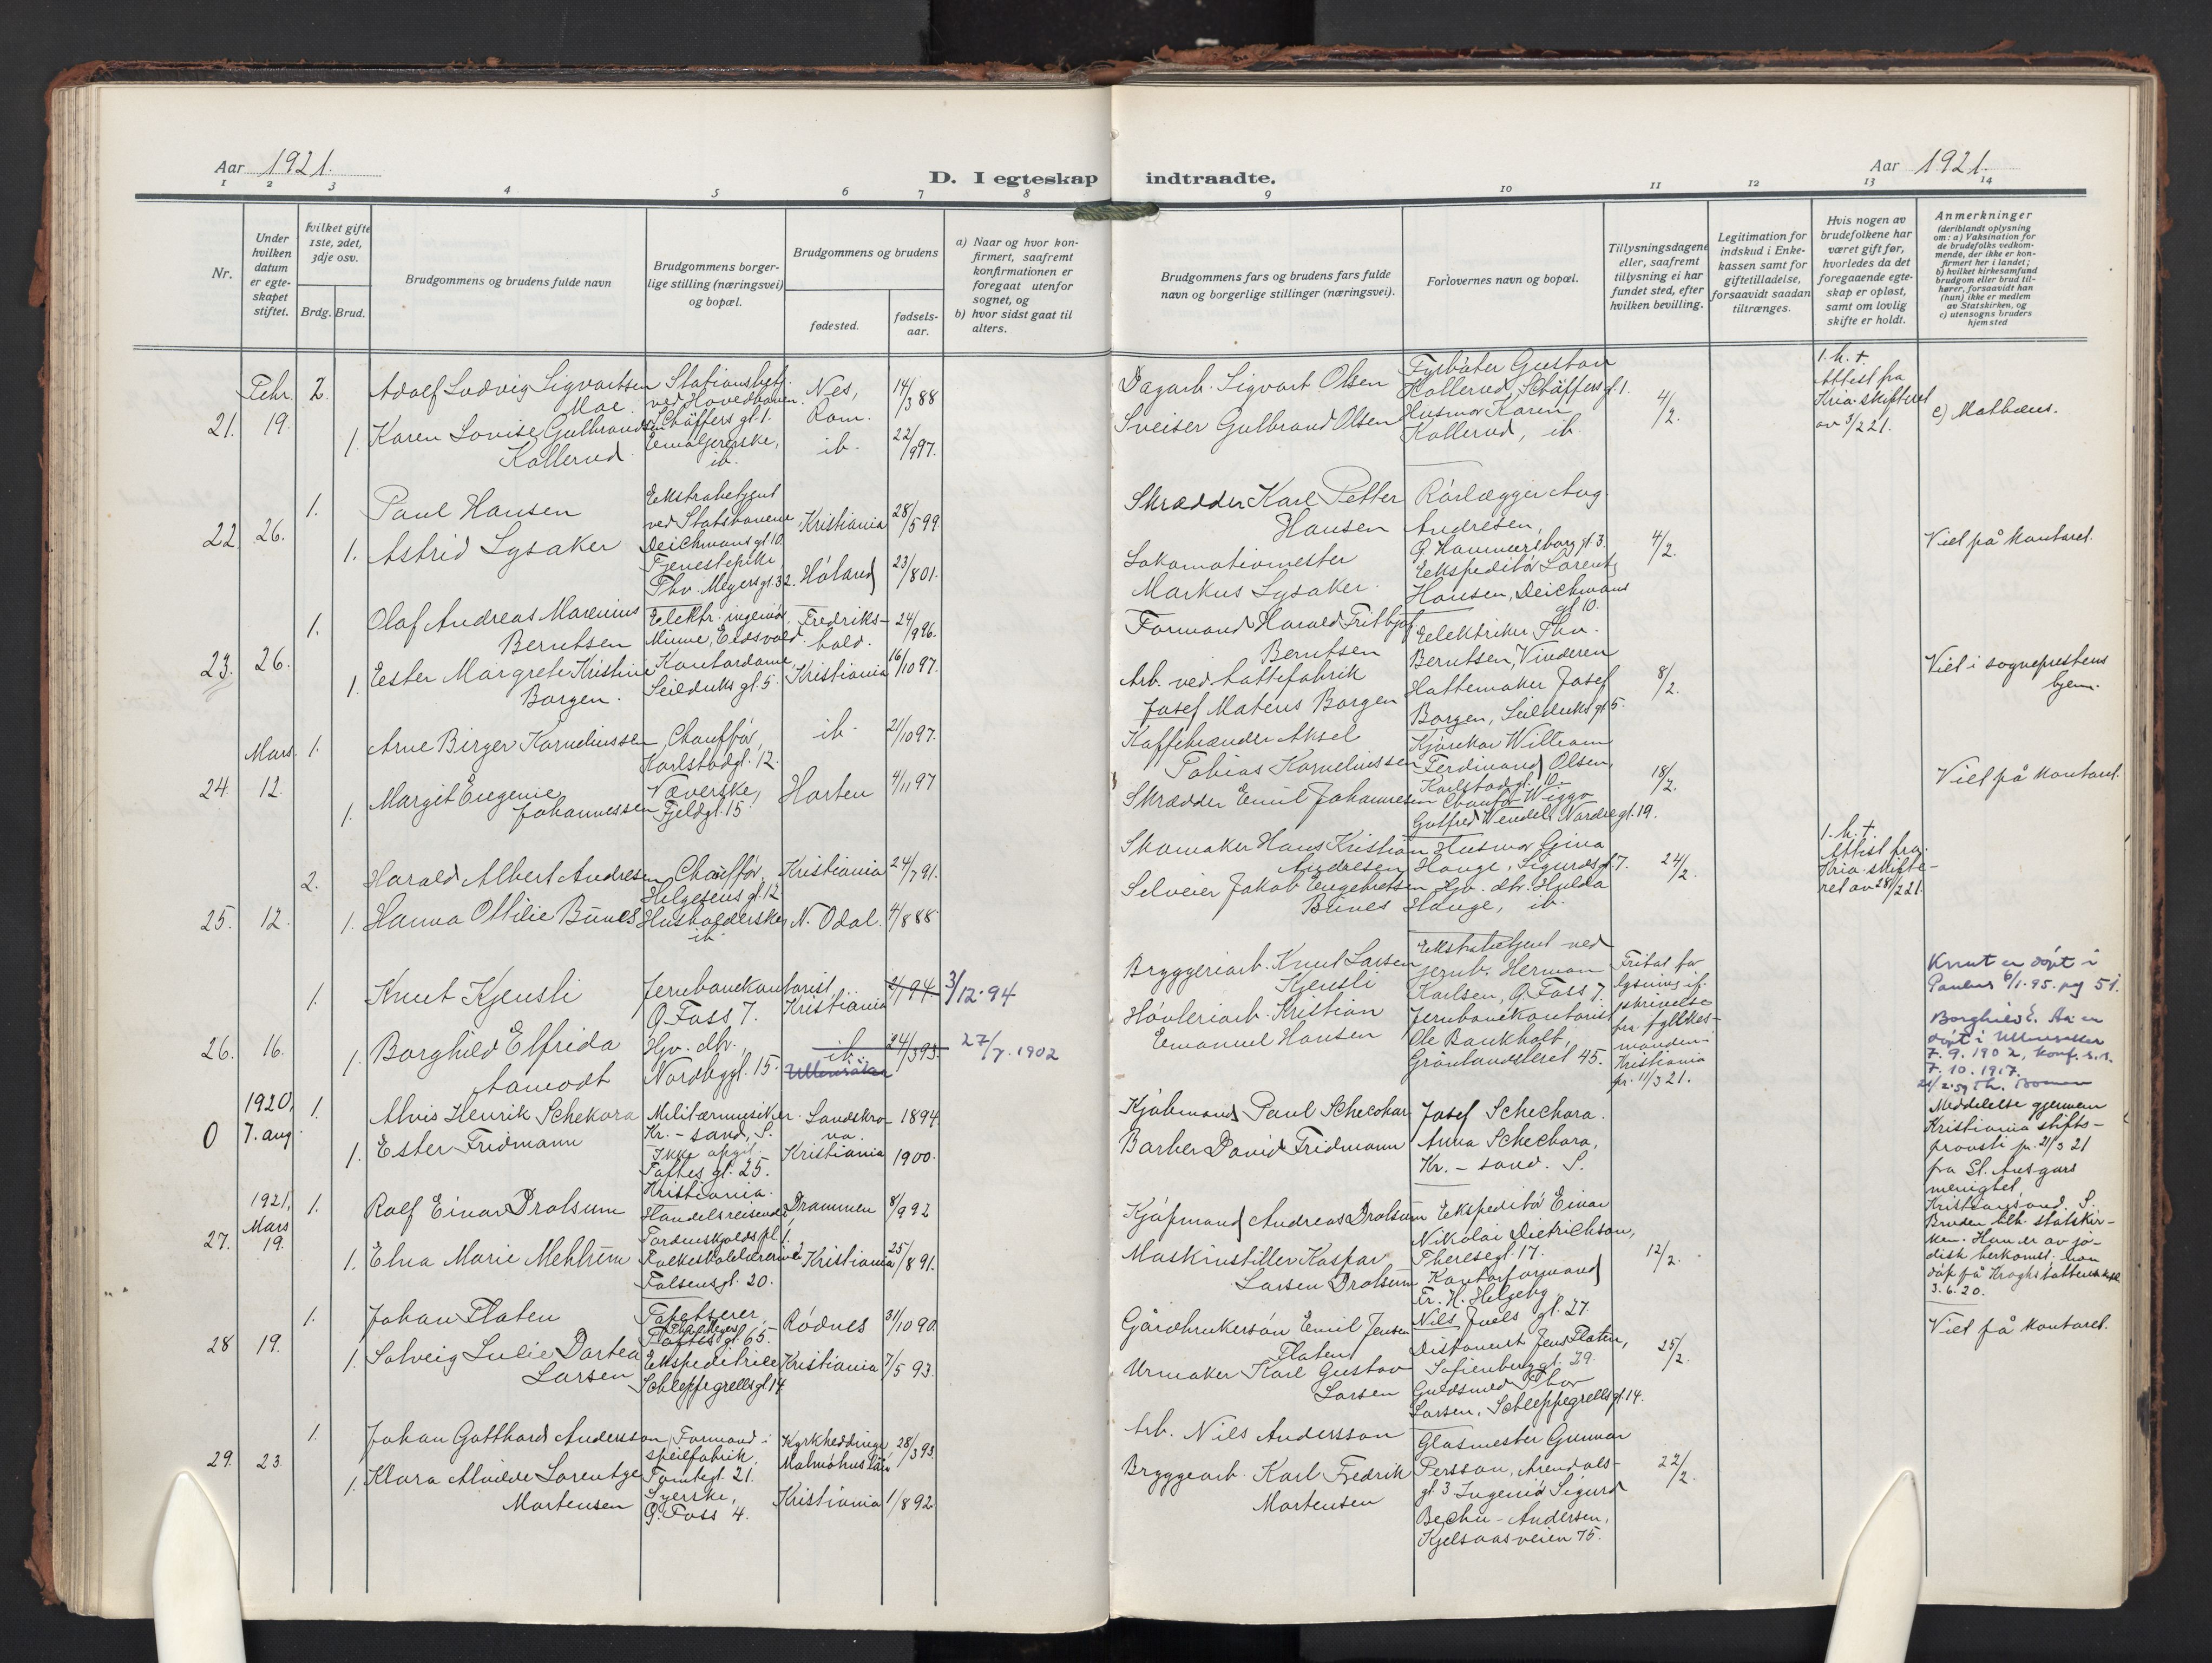 Aar 1921.
D. I egteskap indtraadte.
Aar 1921.
1 2 3 4 5 6 7 8 9 10 11 12 13 14
Nr.
Under hvilken datum er egteskapet stiftet.
Hvilket gifte 1ste, 2det, 3dje osv.
Brdg. Brud.
Brudgommens og brudens fulde navn
Brudgommens borgerlige stilling (næringsvei) og bopæl.
Brudgommens og brudens
fødested.
fødselsaar.
a) Naar og hvor konfirmert, saafremt konfirmationen er foregaat utenfor sognet, og
b) hvor sidst gaat til alters.
Brudgommens fars og brudens fars fulde navn og borgerlige stillinger (næringsvei).
Forlovernes navn og bopæl.
Tillysningsdagene eller, saafremt tillysning ei har fundet sted, efter hvilken bevilling.
Legitimation for indskud i Enkekassen samt for giftetilladelse, forsaavidt saadan tiltrænges.
Hvis nogen av brudefolkene har været gift før, hvorledes da det foregaaende egteskap er opløst, samt om lovlig skifte er holdt.
Anmerkninger (deriblandt oplysning om: a) Vaksination for de brudefolks vedkommende, der ikke er konfirmert her i landet; b) hvilket kirkesamfund brudgom eller brud tilhører, forsaavidt han (hun) ikke er medlem av Statskirken, og c) utensogns bruders hjemsted
21. Febr. 19. 2.
Adolf Ludvig Sigvartsen Moe.
Stationsbetj. ved Hovedbanen. Schäffers gt. 1.
Nes, Rom.
14/3 88
Dagarb. Sigvart Olsen
Fyrbøter Gustav Kollerud, Schäffers gt. 1.
4/2.
1. h. +. Attest fra Kria. skifteret av 3/2 21.
c) Matheus.
1. Karen Lovise Gulbrandsen Kollerud
ib.
ib.
22/9 97.
Sveiser Gulbrand Olsen
Husmor Karen Kollerud, ib.
22. 26. 1.
Paul Hansen
Ekstrabetjent ved Statsbanene, Deichmans gt. 10
Kristiania
28/5 99
Skrædder Karl Petter Hansen
Rørlægger Aug. Andresen, G. Hammersborg gt. 3.
4/2.
Viet på kontoret.
1. Astrid Lysaker
Tjenestepike Thv. Meyers gt. 32.
Høland
23/8 01.
Lokomotivmester Markus Lysaker.
Ekspeditør Lorentz Hansen, Deichmans gt. 10.
23. 26. 1.
Olaf Andreas Marenius Berntsen
Elektr. ingeniør, Minne, Eidsvold.
Fredrikshald.
24/9 96.
Formand Harald Fritbjof Berntsen
Elektriker Thv. Berntsen, Vinderen
8/2.
Viet i sogneprestens hjem.
1. Ester Margrete Kristine Borgen.
Kontordame, Seilduks gt. 5.
Kristiania
16/10 97.
Arb. ved hattefabrik Josef Mateus Borgen
Hattemaker Josef Borgen, Seilduks gt 5.
24. Mars 12. 1.
Arne Birger Korneliussen
Chauffør, Karlstadgt. 12.
ib.
21/10 97.
Kaffebrænder Aksel Tobias Korneliussen
Kjørekar William Ferdinand Olsen, Karlstadgt. 10
18/2.
Viet på kontoret.
1. Margit Eugenie Johannessen
Væverske, Fjeldgt. 15
Horten
4/11 97
Skrædder Emil Johannesen
Chauffør Wiggo Gotfred Wendel, Nordre gt. 19.
25. 12. 2.
Harald Albert Andresen
Chauffør, Helgesens gt. 12
Kristiania
24/7 91.
Skomaker Hans Kristian Andresen
Husmor Gina Hauge, Sigurds gt 7.
24/2.
1. h. +. Attest fra Kria. skifteret av 28/2 21.
1. Hanna Ottilie Bunes
Husholderske, ib
N. Odal.
4/8 88
Selveier Jakob Engebretsen Bunes
Hjv. dtr. Hulda Hauge, ib.
26. 16. 1.
Knut Kjensli
Jernbanekontorist G. Foss 7.
Kristiania
2/1 94 3/12.94
Bryggeriarb. Knut Larsen Kjensli
Ekstrabetjent ved jernb. Herman Karlsen, G. Foss 7.
Fritat for lysning if. skrivelse fra fylkesmanden i Kristiania pr. 11/3 21.
Knut er døpt i Paulus 6/1.95. pag 51.
1. Borghild Elfrida Aamodt
Hjv. dtr., Nordbygt. 15.
ib. Ullensaker
24/3 93. 27/7.1902
Høvleriarb. Kristian Emanuel Hansen
Jernbanekontorist Ole Bankholt, Grønlandsleiret 45.
Borghild E. Aa. er døpt i Ullensaker 7.9.1902, konf. s.s. 7.10.1917.
0 1920, 7. aug. 1.
Alvis Henrik Schekora
Militærmusiker. Kr.-sand, S.
Landskrona.
1894.
Kjøbmand Paul Schecohar
Josef Schechora.
1. Ester Fridmann
Ikke opgit. Toftes gt. 25. Kristiania.
Kristiania
1900.
Barber David Fridmann
Anna Schechora, Kr.-sand. S.
Meddelelse gjennem Kristiania stiftsprovsti pr. 21/3 21 fra St. Ansgars menighet, Kristiansand. S. Bruden tilh. statskirken. Hun er av jødisk herkomst.
3.6.20.
27. 1921, Mars 19. 1.
Rolf Einar Drolsum
Handelsreisende, Tordenskjolds pl. 1.
Drammen
8/9 92
Kjøpmand Andreas Drolsum
Ekspeditør Einar Nikolai Dietrichson, Theresegt. 17.
12/2.
1. Elna Marie Mehlum
Folkeskolelærerinde Falsensgt. 20.
Kristiania
25/8 91.
Maskinstiller Kaspar Larsen Drolsum
Kontorformand Fr. H. Helgeby Nils Juels gt. 27.
28 19. 1.
Johan Platen
Tapetserer, Thv. Meyers gt. 65.
Rødnes
31/10 90.
Gårdbrukersøn Emil Jensen Platen
Jens Platen, Sofienberg gt. 29.
25/2.
Viet på kontoret.
1. Solveig Lulie Dortea Larsen
Ekspeditrice, Schleppegrells gt. 14
Kristiania
7/5 93
Urmaker Karl Gustav Larsen
Guldsmed Thor Larsen, Schleppegrells gt. 14.
29. 23. 1.
Johan Gotthard Andersson
Formand i speilfabrik, Tomtegt. 21.
Kyrkheddinge, Malmöhus län
28/3 93.
Arb. Nils Andersson
Glasmester Gunnar Persson, Arendalsgt. 3
22/2.
1. Klara Alvilde Lorentze Mortensen
Syerske, G. Foss 4.
Kristiania
1/8 92
Bryggearb. Karl Fredrik Mortensen
Ingeniør Sigurd Bechu-Andersen, Kjelsaasveien 75.